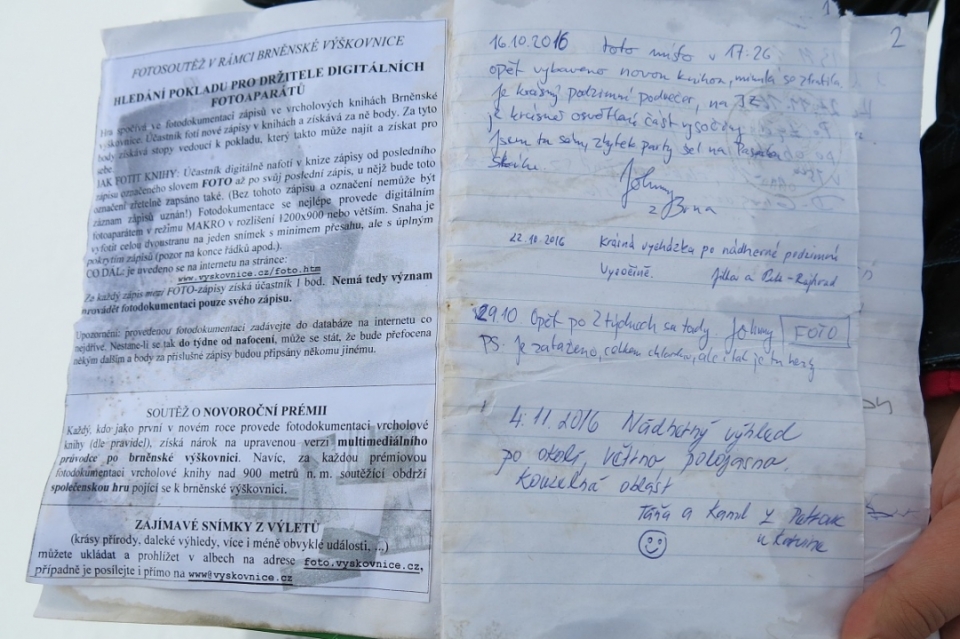 FOTOSOUTĚŽ V RÁMCI BRNĚNSKÉ VÝŠKOVNICE
HLEDÁNÍ POKLADU PRO DRŽITELE DIGITÁLNÍCH
FOTOAPARÁTŮ
Hra spočívá ve fotodokumentaci zápisů ve vrcholových knihách Brněnské
výškovnice. Účastník fotí nové zápisy v knihách a získává za ně body. Za tyto
body získává stopy vedoucí k pokladu, který takto může najít a získat pro
sebe.
JAK FOTIT KNIHU: Účastník digitálně nafotí v knize zápisy od posledního
zápisu označeného slovem FOTO až po svůj poslední zápis, u nějž bude toto
označení zřetelně zapsáno také. (Bez tohoto zápisu a označení nemůže být
záznam zápisů uznán!) Fotodokumentace se nejlépe provede digitálním
fotoaparátem v režimu MAKRO v rozlišení 1200x900 nebo větším. Snaha je
vyfotit celou dvoustranu na jeden snímek s minimem přesahu, ale s úplným
pokrytím zápisů (pozor na konce řádků apod.).
CO DÁL: je uvedeno se na internetu na stránce:
www.vyskovnice.cz/foto.htm
Za každý zápis mezi FOTO-zápisy získá účastník 1 bod. Nemá tedy význam
provádět fotodokumentaci pouze svého zápisu.
Upozornění: provedenou fotodokumentaci zadávejte do databáze na internetu co
nejdříve. Nestane-li se tak do týdne od nafocení, může se stát, že bude přefocena
někým dalším a body za příslušné zápisy budou připsány někomu jinému.
SOUTĚŽ O NOVOROČNÍ PRÉMII
Každý, kdo jako první v novém roce provede fotodokumentaci vrcholové
knihy (dle pravidel), získá nárok na upravenou verzi multimediálního
průvodce po brněnské výškovnici. Navíc, za každou prémiovou
fotodokumentaci vrcholové knihy nad 900 metrů n. m. soutěžící obdrží
společenskou hru pojící se k brněnské výškovnici.
ZAJÍMAVÉ SNÍMKY Z VÝLETŮ
(krásy přírody, daleké výhledy, více i méně obvyklé události, ...)
můžete ukládat a prohlížet v albech na adrese foto.vyskovnice.cz,
případně je posílejte i přímo na www@vyskovnice.cz
2
16.10.2016 toto místo v 17:26
opět vybaveno novou knihou, minulá se ztratila.
Je krásný podzimní podvečer, na JZ
je krásně osvětlená část vysočiny
Jsem tu sám, zbytek party šel na
Johny
z Brna
22.10.2016 Krásná vycházka po nádherné podzimní
Vysočině. Jitka a Petr - Rajhrad
29.10 Opět po 2 týdnech su tady. Johny FOTO
PS: Je zataženo, celkem chladno, ale i tak je tu hezky
4.11.2016 Nádherný výhled
po okolí, většina polojasna.
Kouzelná oblast
Táňa a Kamil z
u